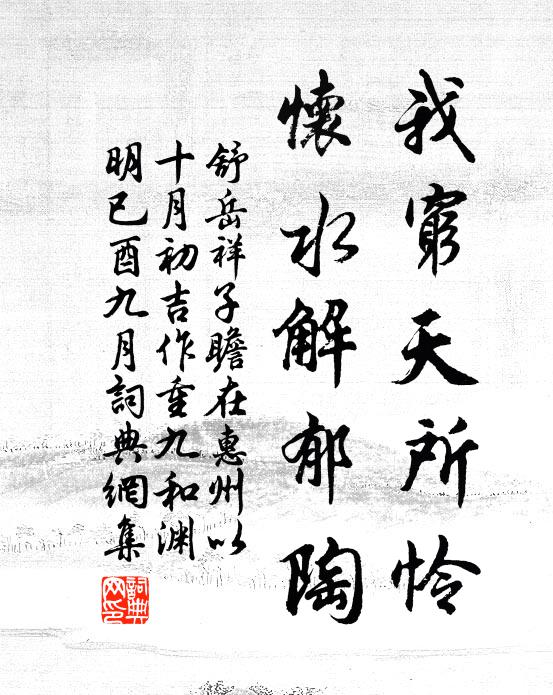 我窮天所怜
懷水解郁陶
舒岳祥子瞻在惠州以
十月初吉作重九和渊
明已酉九月詞典網集
詞典网印